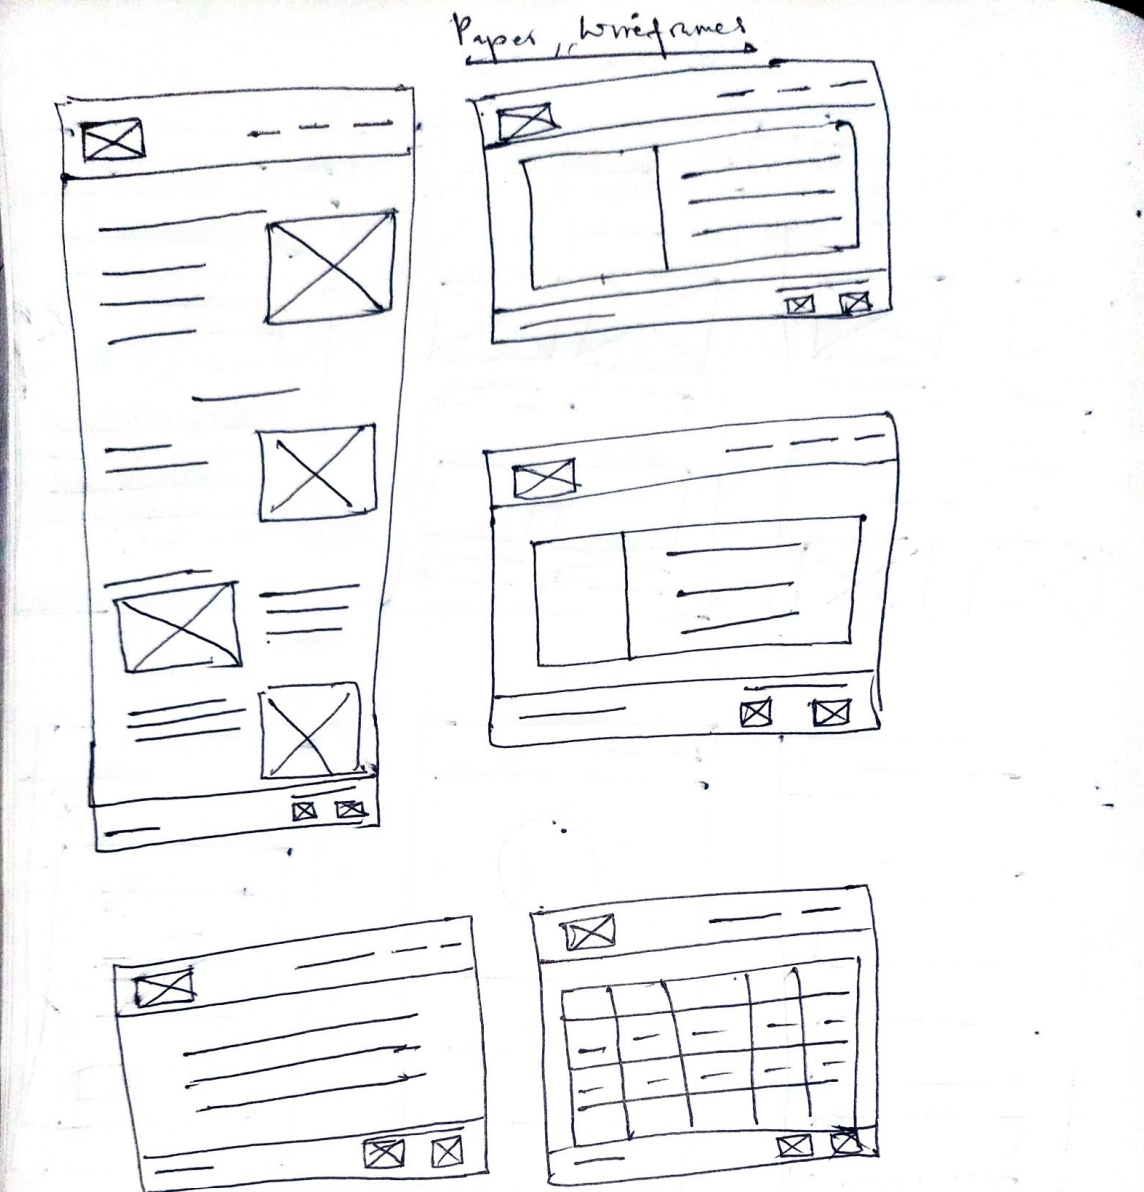 Paper Wireframes